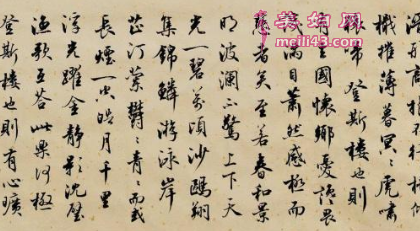 美妇网
meili43.com
檝摧薄暮冥〻虎嘯
啼登斯樓也則
國懷鄉憂讒畏
滿目蕭然感極而
悲者矣至若春和景
明波瀾不驚上下天
光一碧萬頃沙鷗翔
集錦鱗游泳岸
芷汀蘭鬱〻青〻而或
長煙一空皓月千里
浮光躍金靜影沉璧
漁歌互答此樂何極
登斯樓也則有心曠